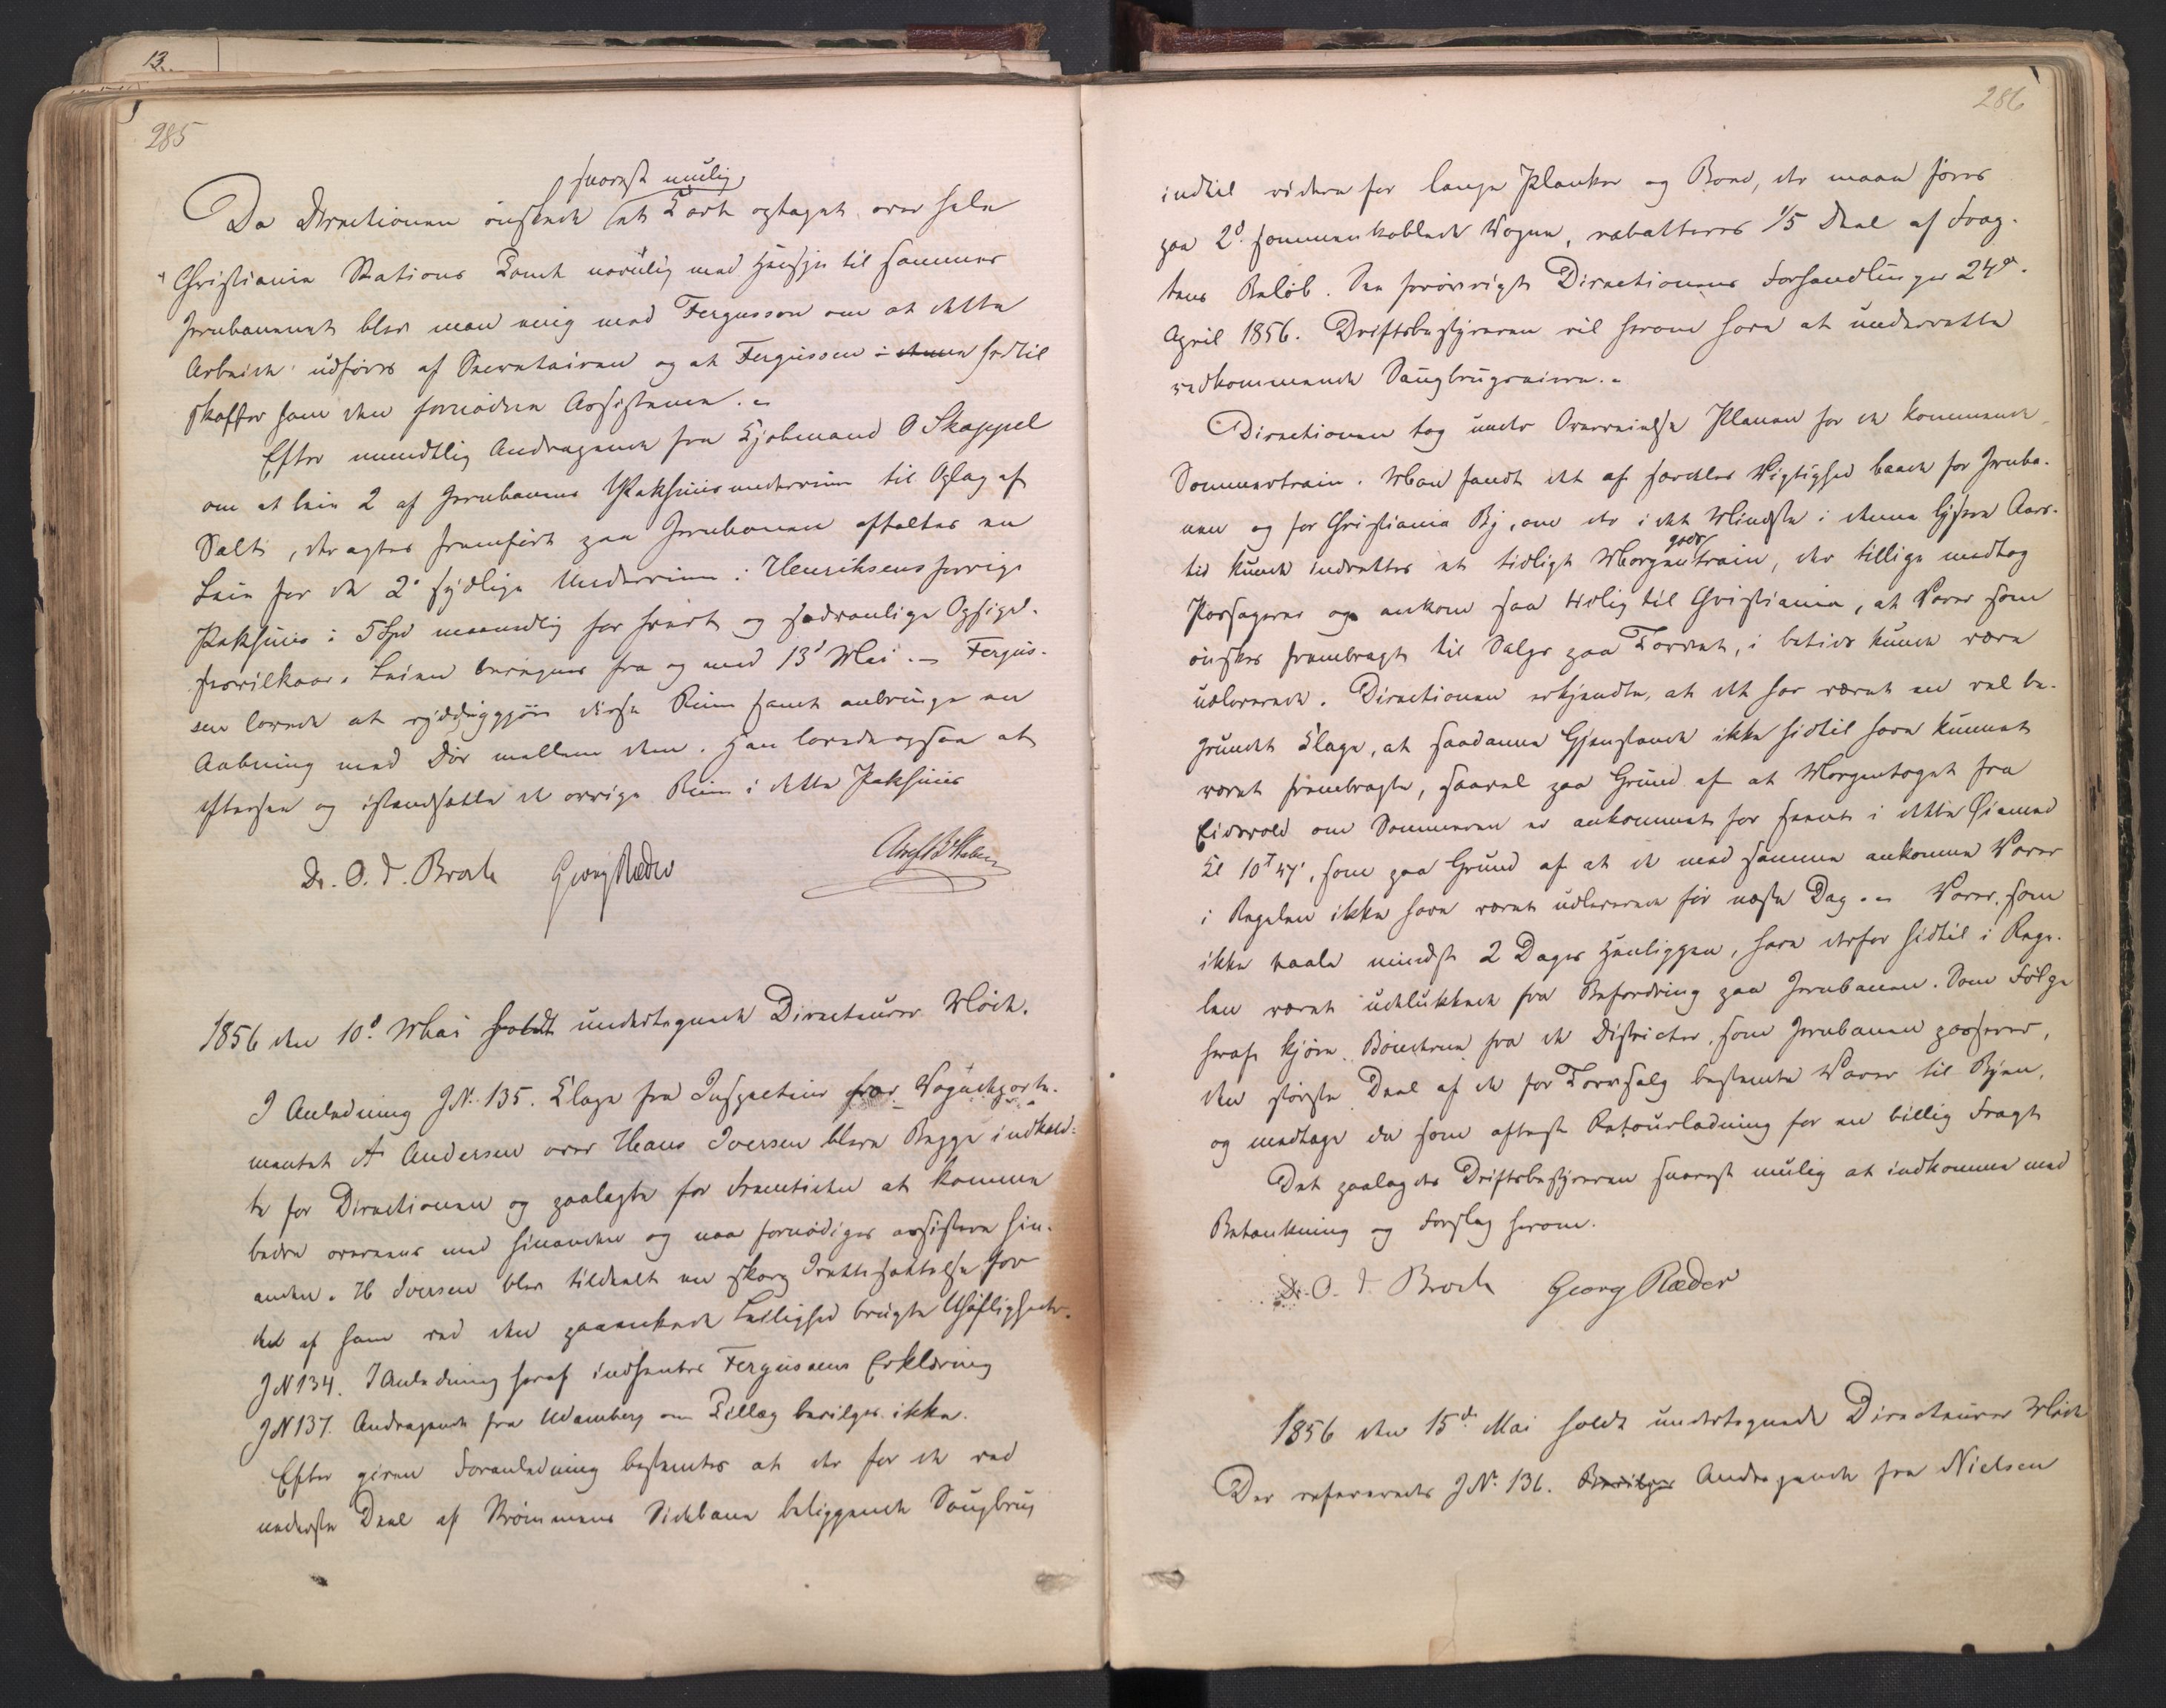 13.
285
snarest mulig
Da Directionen ønskede et Kart optaget over hele
Christiania Stations Tomt navnlig med Hensyn til sammes
Jernbanenet blev man enig med Fergusson om at dette
Arbeide udføres af Secretairen og at Fergusson i denne hertil
skaffer ham den fornødne Assistance.
Efter mundtlig Andragende fra Kjøbmand O Skappel
om at leie 2 af Jernbanens Pakhuusunderrum til Oplag af
Salt, der agtes fremført paa Jernbanen aftaltes en
Leie for de 2de sydlige Underrum i Henriksens forrige
Pakhuus i 5 Spd maanedlig for hvert og sædvanlige Opsigel-
sesvilkaar. Leien beregnes fra og med 13d Mai. Fergus-
sen lovede at ryddiggjøre disse Rum samt anbringe en
Aabning med Dør mellem dem. Han lovede ogsaa at
eftersee og istandsætte de øvrige Rum i dette Pakhuus
Dr. O. J. Broch Georg Ræder
1856 den 10d Mai holdt undertegnede Directeurer Møde.
I Anledning JN. 135. Klage fra Inspecteur for Vogndeparte-
mentet A Andersen over Hans Iversen bleve Begge indkald-
te for Directionen og paalagte for Fremtiden at komme
bedre overeens med hinanden og naar fornødiges assistere hin-
anden. H Iversen blev tildeelt en skarp Irettesættelse for
det af ham ved den paaankede Leilighed brugte Uhøfligheder.
JN 134. I Anledning heraf indhentes Fergusons Erklæring
JN 137. Andragende fra Wamberg om Tillæg bevilges ikke.
Efter given Foranledning bestemtes at der for de ved
nederste Deel af Strømmens Sidebane beliggende Saugbrug
286
indtil videre for lange Planker og Bord, der maae føres
paa 2d sammenkoblede Vogne, rabatteres 1/5 Deel af Frag-
tens Beløb. See forøvrigt Directionens Forhandlinger 24de
April 1856. Driftsbestyreren vil herom have at underrette
vedkommende Saugbrugseiere.
Directionen tog under Overveielse Planen for de kommende
Sommertrain. Man fandt det af særdeles Vigtighed baade for Jernba-
nen og for Christiania By, om der i det Mindste i denne lysere Aars-
tid kunde indrettes et tidligt Morgen gods train, der tillige medtog
Passagerer og ankom saa tidlig til Christiania, at Varer som
ønskes frembragt til Salgs paa Torvet, i betids kunde være
udleverede. Directionen erkjendte, at det har været en vel be-
grundet Klage, at saadanne Gjenstande ikke hidtil have kunnet
været frembragte, saavel paa Grund af at Morgentoget fra
Eidsvold om Sommeren er ankommet for seent i dette Øiemed
Kl 10T 47', som paa Grund af at de med samme ankomne Varer
i Regelen ikke have været udleverede før næste Dag. Varer, som
ikke taale mindst 2 Dages Henliggen, have derfor hidtil i Rege-
len været udelukkede fra Befordring paa Jernbanen. Som Følge
heraf kjøre Bønderne fra de Districter, som Jernbanen passerer,
den største Deel af de for Torvsalg bestemte Varer til Byen,
og medtage da som oftest Retourladning for en billig Fragt
Det paalagdes Driftsbestyreren snarest mulig at indkomme med
Betænkning og Forslag herom.
Dr. O. J. Broch Georg Ræder
1856 den 15de Mai holdt undertegnede Directeurer Møde
Der refereredes JN. 136. Bevilges Andragende fra Nielsen